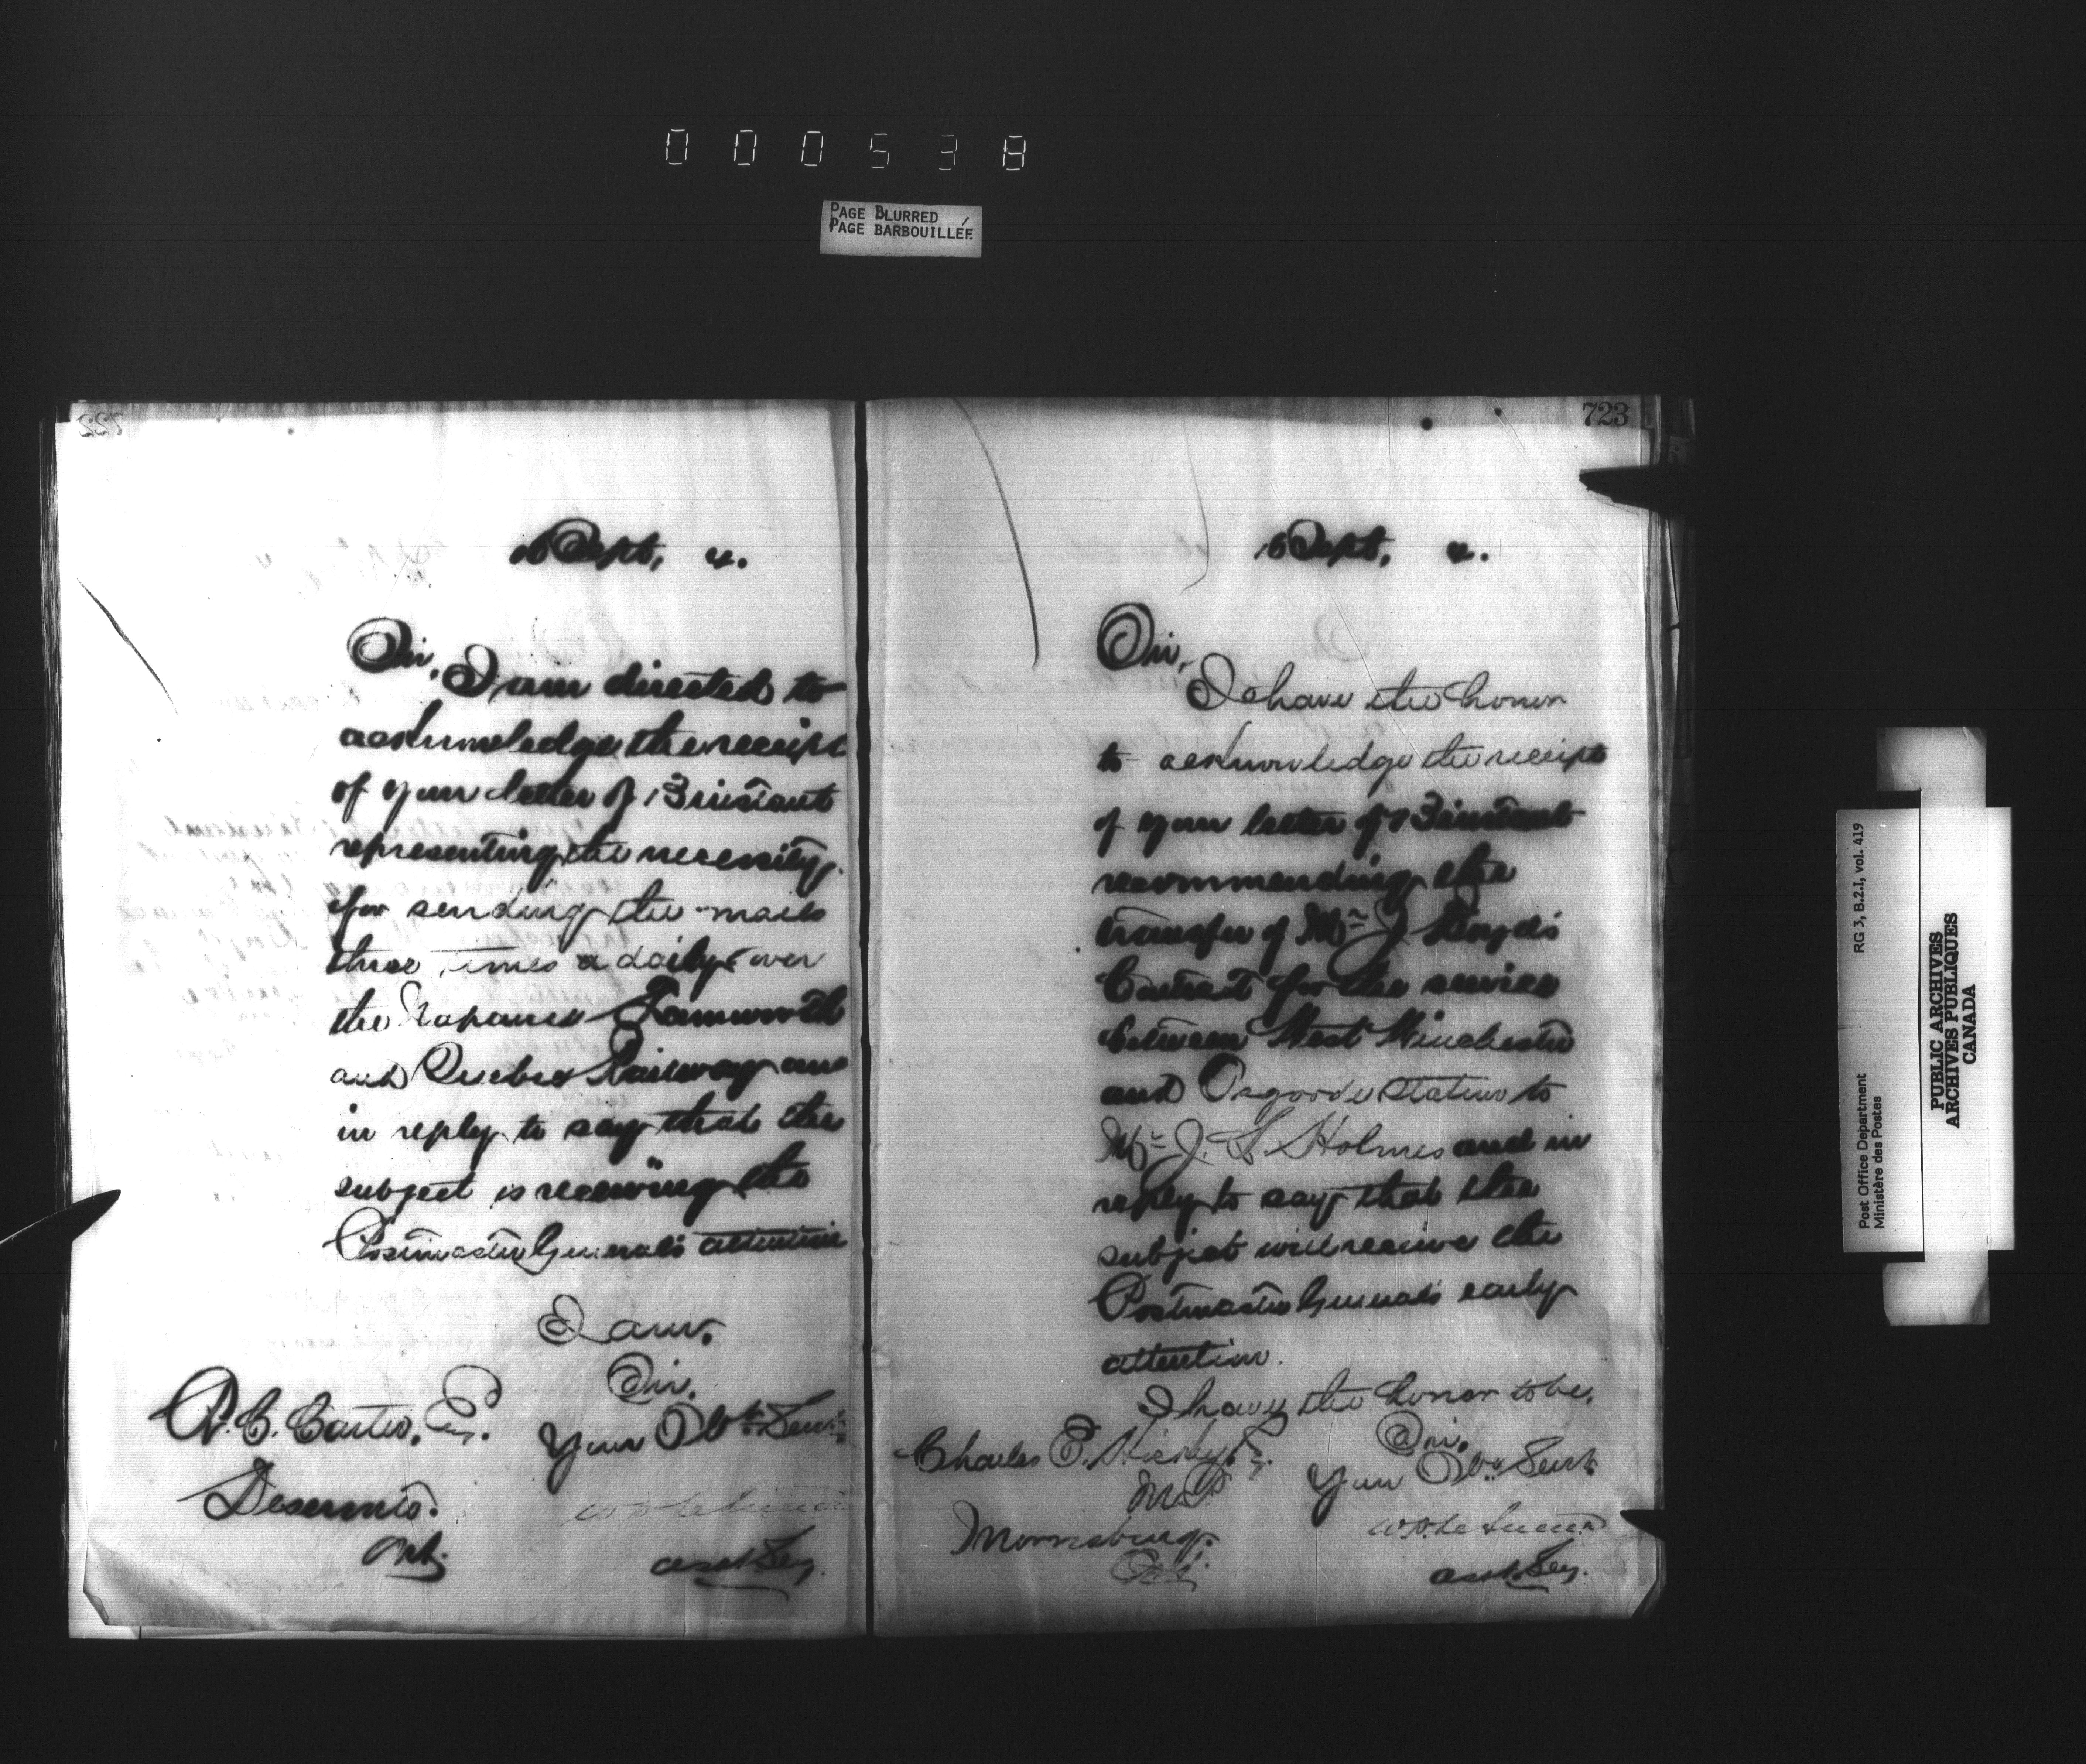 000538
PAGE BLURRED
PAGE BARBOUILLÉE
722
16 Sept, 4.
Sir,
I am directed to
acknowledge the receipt
of your letter of 13 instant
representing the necessity
for sending the mails
three times a daily over
the Napanee Tamworth
and Quebec Railway and
in reply to say that the
subject is receiving the
Postmaster General's attention
I am,
Sir,
Your Obt. Servt.
R. C. Carter, Esq.
Deseronto.
Ont.
asst. Secy.
723
16 Sept, 4.
Sir,
I have the honor
to acknowledge the receipt
of your letter of 13 instant
recommending the
transfer of Mr J Boyd's
Contract for the service
between West Winchester
and Osgoode Station to
Mr J. S. Holmes and in
reply to say that the
subject will receive the
Postmaster General's early
attention.
I have the honor to be,
Sir,
Your Obt. Servt.
Charles E. Hickey, Esq.
M.P
Morrisburg.
Ont.
asst. Secy.
Post Office Department
Ministère des Postes
RG 3, B.2.I, vol. 419
PUBLIC ARCHIVES
ARCHIVES PUBLIQUES
CANADA